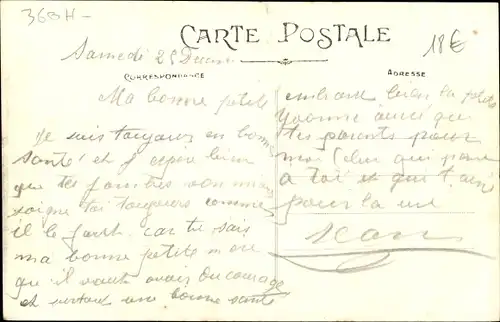 36BH-
CARTE POSTALE
18€
Samedi 25
CORRESPONDANCE
ADRESSE
Ma bonne petite
Je suis toujours en bonne
santé et j espère bien
que tes jambes vont mieux
soigne toi toujours comme
il le faut car tu sais
ma bonne petite
qu il vaut avoir du courage
et surtout une bonne santé
embrasse bien la petite
Yvonne ainsi que
tes parents pour
moi celui qui pense
a toi et qui t aime
pour la vie
Jean